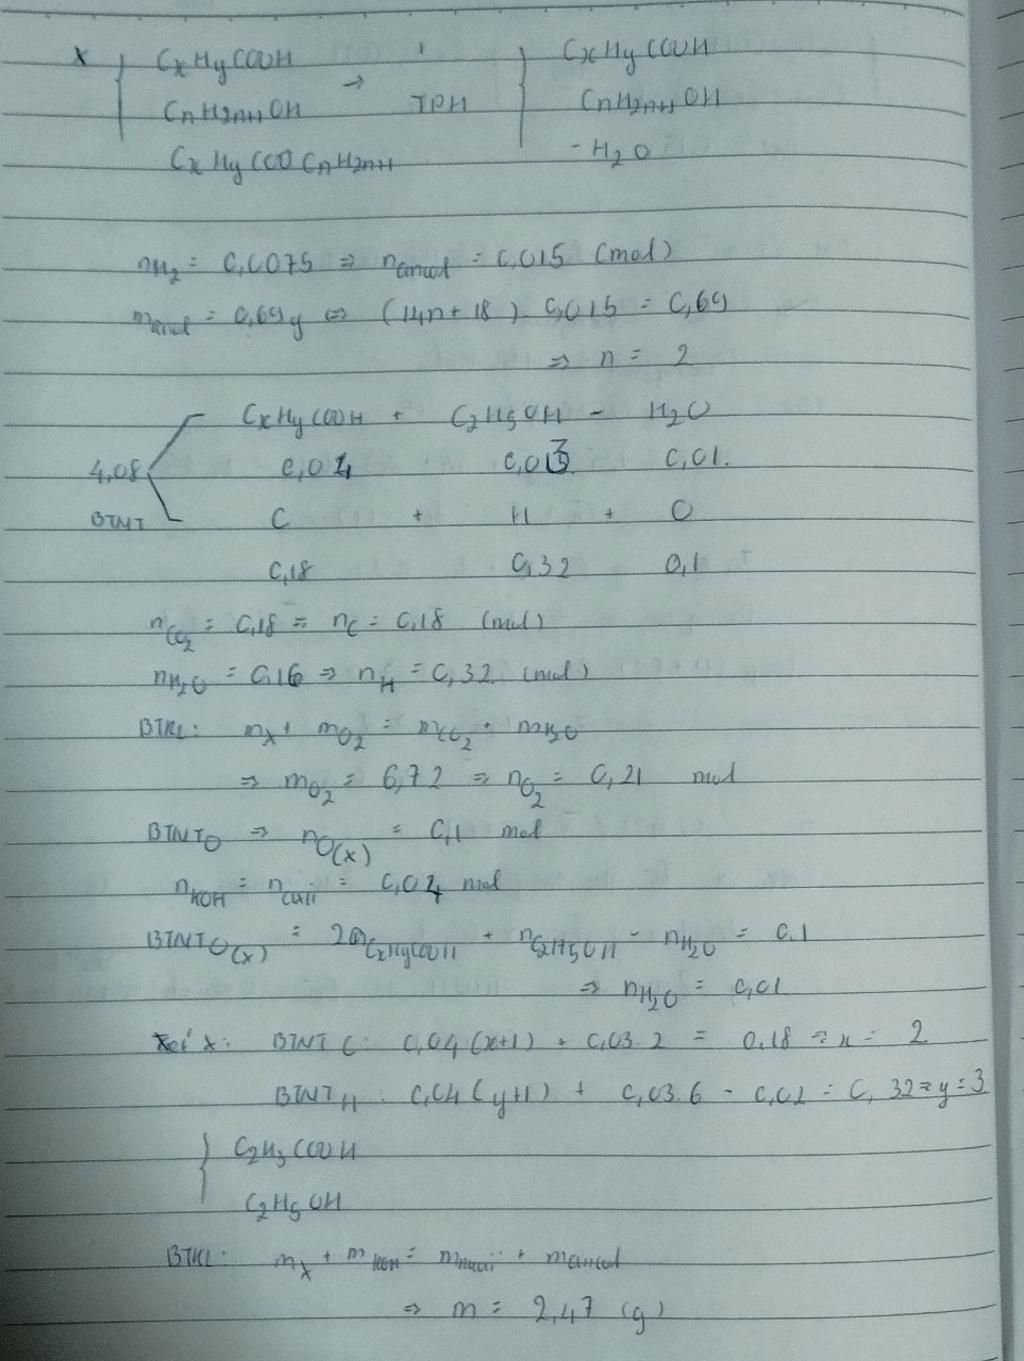 X { CxHyCOOH → CxHyCOOH
CnH2n+1OH TPH CnH2n+1OH
CxHyCOOCnH2n+1 - H2O
nH2 = 0,0075 ⇒ nancol = 0,015 (mol)
mancol = 0,69g ⇔ (14n + 18). 0,015 = 0,69
⇒ n = 2
CxHyCOOH + C2H5OH - H2O
4,08 0,04 0,03 0,01.
BTNT C + H + O
0,18 0,32 0,1
nCO2 = 0,18 ⇒ nC = 0,18 (mol)
nH2O = 0,16 ⇒ nH = 0,32 (mol)
BTKL: mX + mO2 = mCO2 + mH2O
⇒ mO2 = 6,72 ⇒ nO2 = 0,21 mol
BTNTO ⇒ nO(X) = 0,1 mol
nKOH = = 0,04 mol
BTNTO(X) = 2nCxHyCOOH + nC2H5OH - nH2O = 0,1
⇒ nH2O = 0,01
X: BTNT C: 0,04(x+1) + 0,03.2 = 0,18 ⇒ x = 2
BTNT H: 0,04(y+1) + 0,03.6 - 0,02 = 0,32 ⇒ y = 3
{ C2H3COOH
C2H5OH
BTKL: mX + mKOH = mmuối + mancol
⇒ m = 2,47 (g)